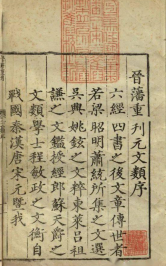 晉藩重刊元文類序
六經四書之後文章傳世者
若梁昭明蕭統所集之文選
吳興姚鉉之文粹東萊呂祖
謙之文鑑授經郎蘇天爵之
文類學士程敏政之文衡自
戰國秦漢唐宋元曁我